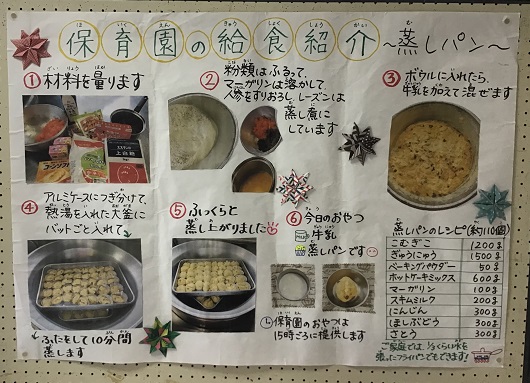 保育園の給食紹介 ~蒸しパン~
ほいくえん きゅうしょくしょうかい む
① 材料を量ります
ざいりょう
② 粉類はふるって、
マーガリンは溶かして
人参をすりおろしレーズンは
蒸し煮に
しています
③ ボウルに入れたら、
牛乳を加えて混ぜます
上白糖
④ アルミケースにつぎ分けて、
熱湯を入れた大釜に
バットごと入れて
ふたをして10分間
蒸します
⑤ ふっくらと
蒸し上がりました
⑥ 今日のおやつ
牛乳
蒸しパンです
保育園のおやつは
15時ごろに提供します
蒸しパンのレシピ(約110個)
こむぎこ 1200g
ぎゅうにゅう 1500g
ベーキングパウダー 50g
ホットケーキミックス 600g
マーガリン 100g
スキムミルク 200g
にんじん 300g
ほしぶどう 300g
さとう 300g
ご家庭では、1/2くらい水を
張ったフライパンでもできます!